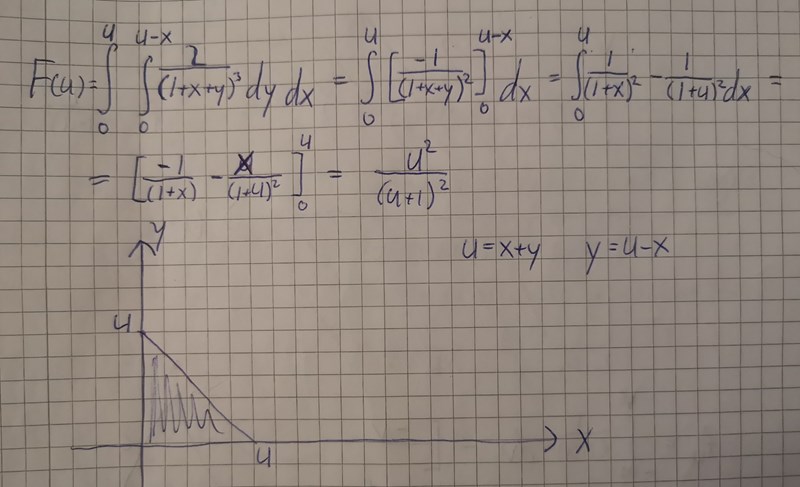 F(u) = ∫₀ᵘ ∫₀ᵘ⁻ˣ 2/(1+x+y)³ dy dx = ∫₀ᵘ [-1/(1+x+y)²]₀ᵘ⁻ˣ dx = ∫₀ᵘ 1/(1+x)² - 1/(1+u)² dx =
= [-1/(1+x) - x/(1+u)²]₀ᵘ = u²/(u+1)²
y
u = x+y y = u-x
u
u
x